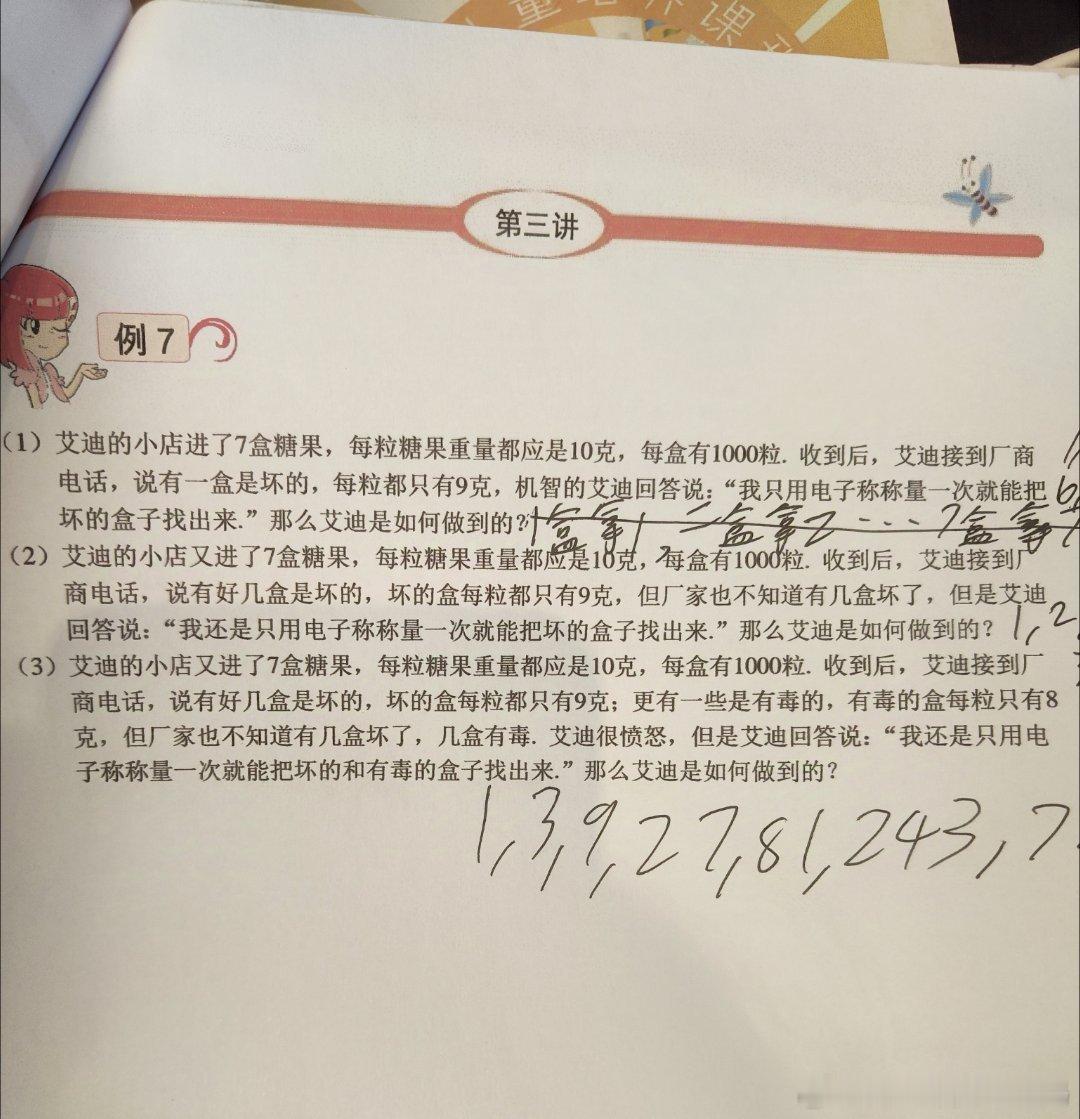 童培养课
第三讲
例7
(1) 艾迪的小店进了7盒糖果，每粒糖果重量都应是10克，每盒有1000粒. 收到后，艾迪接到厂商
电话，说有一盒是坏的，每粒都只有9克，机智的艾迪回答说：“我只用电子称称量一次就能把
坏的盒子找出来.”那么艾迪是如何做到的？1盒拿1，二盒拿2 … 7盒拿
(2) 艾迪的小店又进了7盒糖果，每粒糖果重量都应是10克，每盒有1000粒. 收到后，艾迪接到厂
商电话，说有好几盒是坏的，坏的盒每粒都只有9克，但厂家也不知道有几盒坏了，但是艾迪
回答说：“我还是只用电子称称量一次就能把坏的盒子找出来.”那么艾迪是如何做到的？1,2
(3) 艾迪的小店又进了7盒糖果，每粒糖果重量都应是10克，每盒有1000粒. 收到后，艾迪接到厂
商电话，说有好几盒是坏的，坏的盒每粒都只有9克；更有一些是有毒的，有毒的盒每粒只有8
克，但厂家也不知道有几盒坏了，几盒有毒. 艾迪很愤怒，但是艾迪回答说：“我还是只用电
子称称量一次就能把坏的和有毒的盒子找出来.”那么艾迪是如何做到的？
1,3,9,27,81,243,7